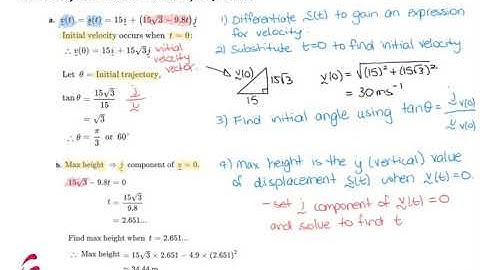 a. v(t) = ṡ(t) = 15i + (15√3 − 9.8t)j
Initial velocity occurs when t = 0:
∴ v(0) = 15i + 15√3j
initial
velocity
vector.
Let θ = Initial trajectory,
tan θ = 15√3/15
j
i
= √3
∴ θ = π/3 or 60°
b. Max height ⇒ j component of v = 0.
15√3 − 9.8t = 0
t = 15√3/9.8
= 2.651...
Find max height when t = 2.651...
∴ Max height = 15√3 × 2.651 − 4.9 × (2.651)²
≈ 34.44 m
1) Differentiate s(t) to gain an expression
for velocity.
2) Substitute t=0 to find initial velocity
v(0)
15√3
15
v(0) = √(15)² + (15√3)²
= 30ms⁻¹
3) Find initial angle using tanθ = j v(0) / i v(0)
4) Max height is the y (vertical) value
of displacement s(t) when v(t) = 0.
- set j component of v(t) = 0
and solve to find t